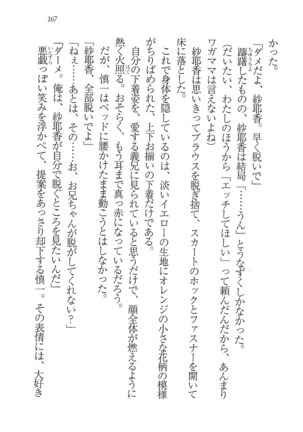 167
かった。
「ダメだよ、紗耶香。早く脱いで」
躊躇したものの、紗耶香は結局「……うん」とうなずくしかなかった。
（だいたい、わたしのほうから「エッチしてほしい」って頼んだんだから、あんまり
ワガママは言えないよね）
紗耶香は思いきってブラウスを脱ぎ捨て、スカートのホックとファスナーを開いて
床に落とした。
これで身体を隠しているのは、淡いイエローの生地にオレンジの小さな花柄の模様
がちりばめられた、上下お揃いの下着だけである。
自分の下着姿を、愛する義兄に見られていると思うだけで、顔全体が燃えるように
熱く火照る。おそらく、もう耳まで真っ赤になっているだろう。
だが、慎一はベッドに腰かけたまま動こうとはしなかった。
「紗耶香、全部脱いでよ」
「ねぇ……あとは、その……お、お兄ちゃんが脱がしてくれない？」
「ダーメ。俺は、紗耶香が自分で脱ぐところを見たいんだ」
悪戯っぽい笑みを浮かべて、提案をあっさり却下する慎一。その表情には、大好き